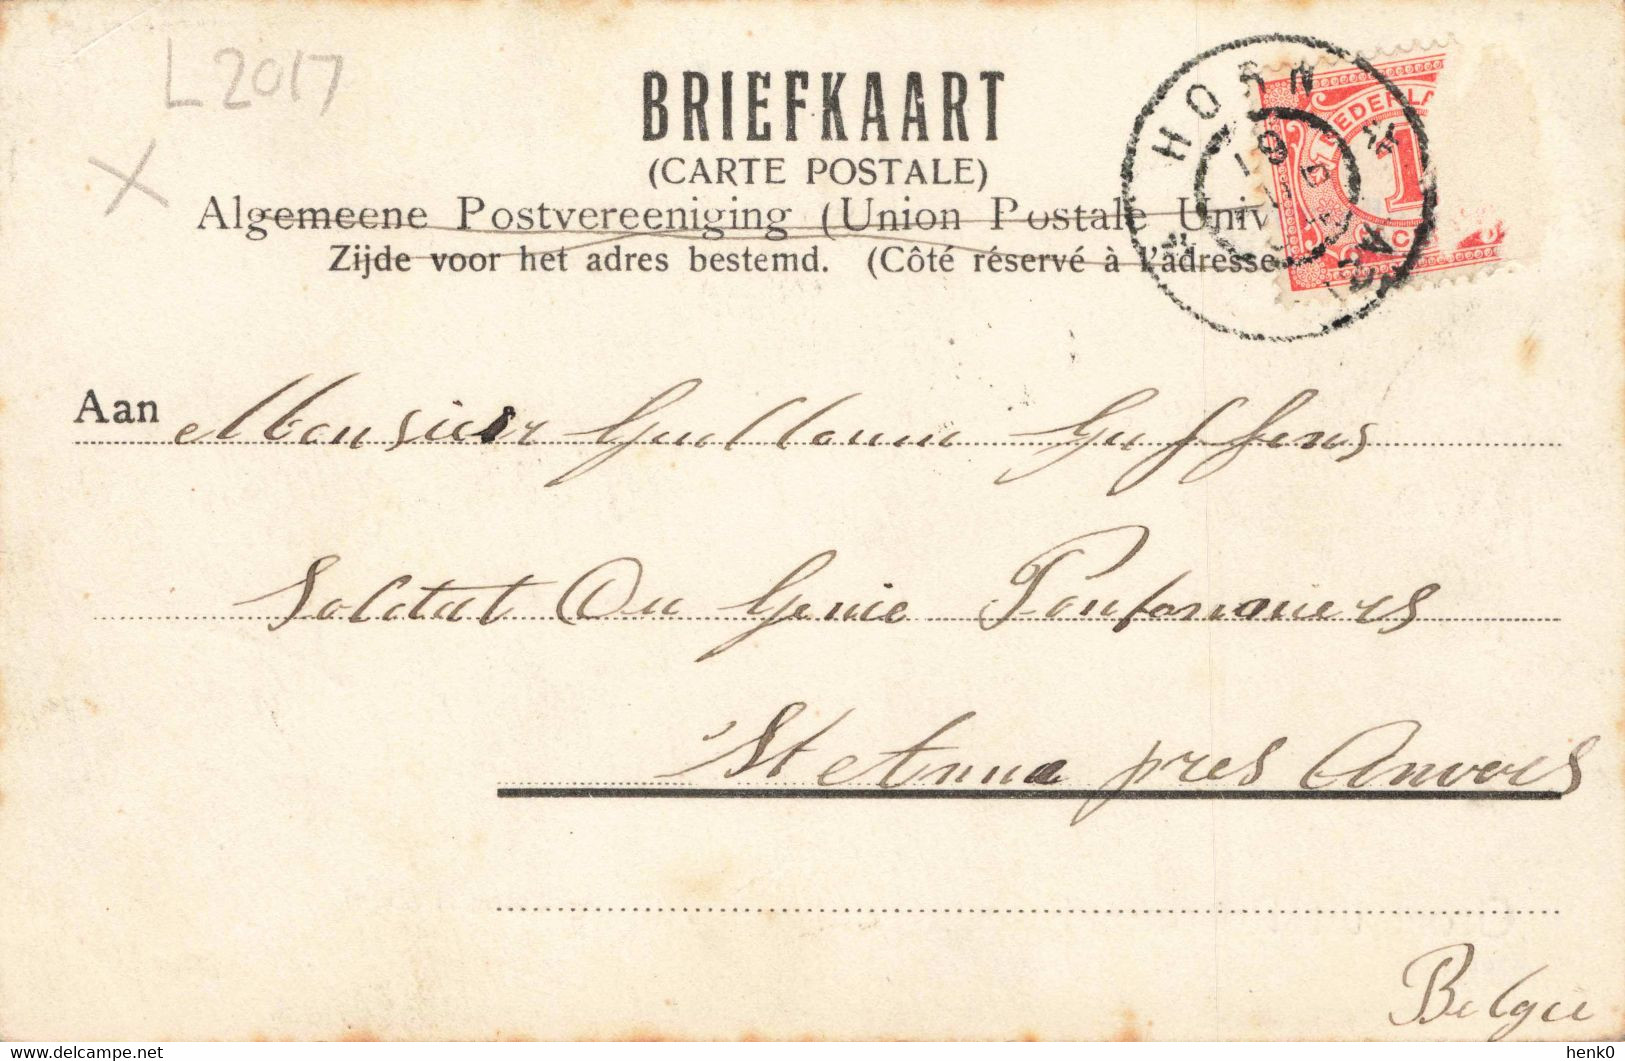 L2017
X
BRIEFKAART
(CARTE POSTALE)
Algemeene Postvereeniging (Union Postale Univ
Zijde voor het adres bestemd. (Côté réservé à l'adresse
HORN
NEDERLA
1
C
Aan Monsieur Guillaume Guffens
Soldat Du Genie Pontonniers
St Anna pres Anvers
Belgie
henk0